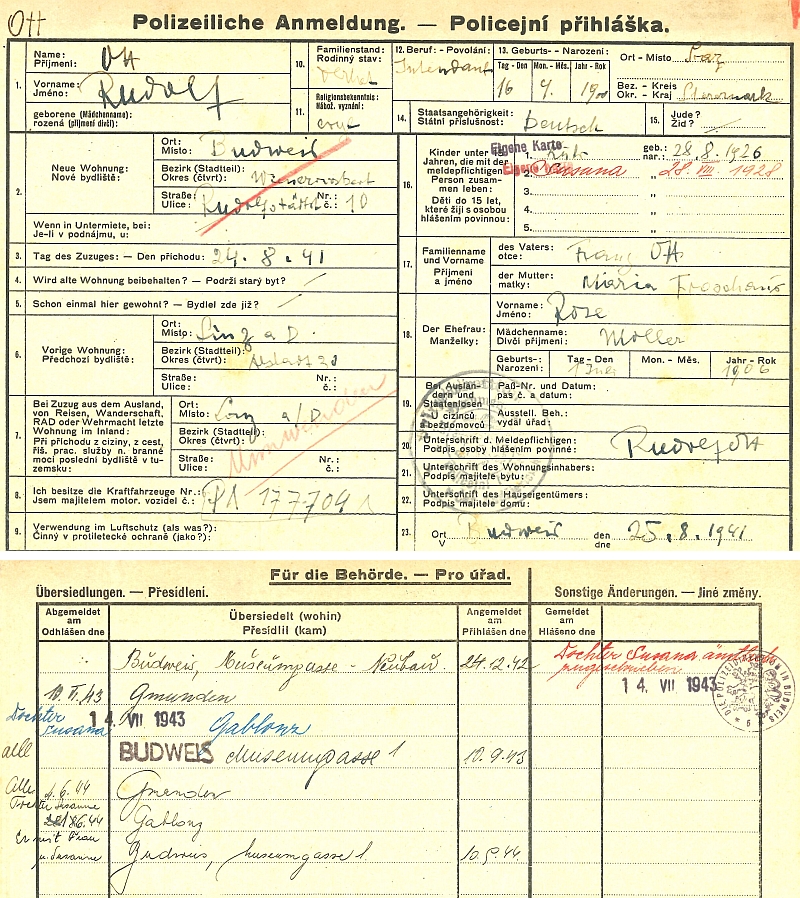 Ott
Polizeiliche Anmeldung. — Policejní přihláška.
1.
Name:
Příjmení:
Ott
Vorname:
Jméno:
Rudolf
geborene (Mädchenname):
rozená (příjmení dívčí):
10.
Familienstand:
Rodinný stav:
11.
Religionsbekenntnis:
Nábož. vyznání:
12. Beruf: - Povolání:
Intendant
13. Geburts- - Narození:
Tag - Den
Mon. - Měs.
Jahr - Rok
16
Ort - Místo
Graz
Bez. - Kreis
Okr. - Kraj
Steiermark
14.
Staatsangehörigkeit:
Státní příslušnost:
Deutsch
15.
Jude?
Žid?
2.
Neue Wohnung:
Nové bydliště:
Ort:
Místo:
Budweis
Bezirk (Stadtteil):
Okres (čtvrť):
Straße:
Ulice:
Nr.:
č.:
10
Wenn in Untermiete, bei:
Je-li v podnájmu, u:
3.
Tag des Zuzuges: — Den příchodu:
24. 8. 41
4.
Wird alte Wohnung beibehalten? — Podrží starý byt?
5.
Schon einmal hier gewohnt? — Bydlel zde již?
6.
Vorige Wohnung:
Předchozí bydliště:
Ort:
Místo:
Linz a D.
Bezirk (Stadtteil):
Okres (čtvrť):
Straße:
Ulice:
Nr.:
č.:
7.
Bei Zuzug aus dem Ausland,
von Reisen, Wanderschaft,
RAD oder Wehrmacht letzte
Wohnung im Inland:
Při příchodu z ciziny, z cest,
říš. prac. služby n. branné
moci poslední bydliště v tu-
zemsku:
Ort:
Místo:
Linz a/D
Bezirk (Stadtteil):
Okres (čtvrť):
Straße:
Ulice:
Nr.:
č.:
8.
Ich besitze die Kraftfahrzeuge Nr.:
Jsem majitelem motor. vozidel č.:
177704
9.
Verwendung im Luftschutz (als was?):
Činný v protiletecké ochraně (jako?):
16.
Kinder unter 15
Jahren, die mit der
meldepflichtigen
Person zusam-
men leben:
Děti do 15 let,
které žijí s osobou
hlášením povinnou:
Eigene Karte
1.
geb.:
nar.:
28. 8. 1926
2. Susana
28. VIII. 1928
3.
4.
5.
17.
Familienname
und Vorname
Příjmení
a jméno
des Vaters:
otce:
Franz Ott
der Mutter:
matky:
Maria
18.
Der Ehefrau:
Manželky:
Vorname:
Jméno:
Rose
Mädchenname:
Dívčí příjmení:
Möller
Geburts-:
Narození:
Tag - Den
Mon. - Měs.
Jahr - Rok
1906
19.
Bei Auslän-
dern und
Staatenlosen
U cizinců
bezdomovců
Paß-Nr. und Datum:
pas č. a datum:
Ausstell. Beh.:
vydal úřad:
20.
Unterschrift d. Meldepflichtigen:
Podpis osoby hlášením povinné:
Rudolf Ott
21.
Unterschrift des Wohnungsinhabers:
Podpis majitele bytu:
22.
Unterschrift des Hauseigentümers:
Podpis majitele domu:
23.
Ort
V
Budweis
den
dne
25. 8. 1941
Für die Behörde. — Pro úřad.
Übersiedlungen. — Přesídlení.
Sonstige Änderungen. — Jiné změny.
Abgemeldet
am
Odhlášen dne
Übersiedelt (wohin)
Přesídlil (kam)
Angemeldet
am
Přihlášen dne
Gemeldet
am
Hlášeno dne
Budweis, Museumgasse - Neubau
24.12.42
Tochter Susana
14. VII 1943
Gmunden
Tochter
Susana
14. VII 1943
Gablonz
alle
BUDWEIS Museumgasse 1
10.9.43
Alle
4.6.44
Gmunden
Gablonz
Er mit Frau
u. Susanne
Budweis, Museumgasse 1.